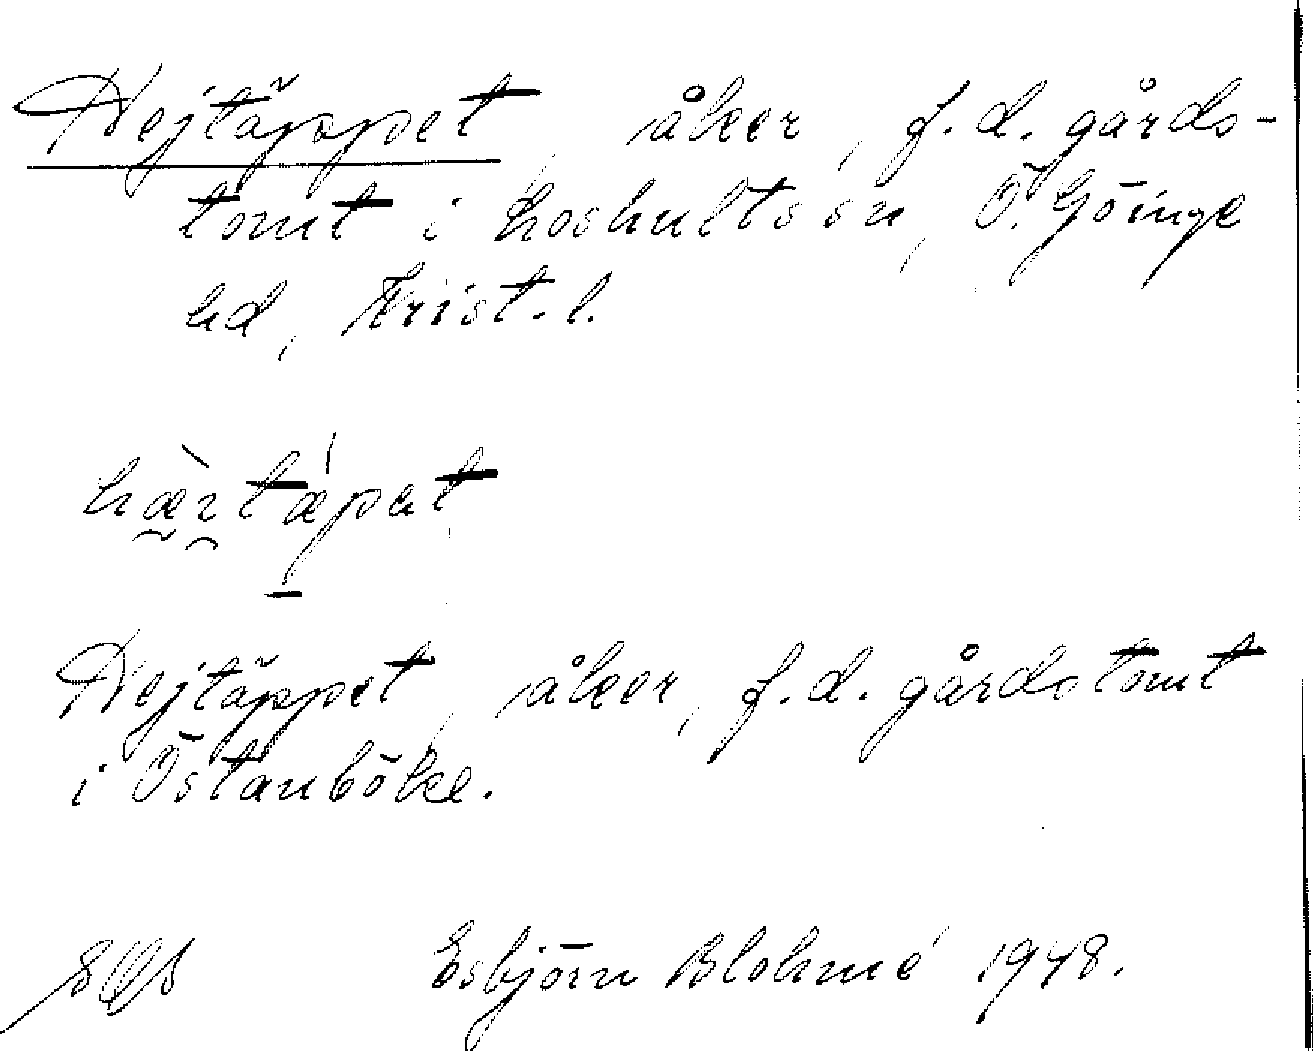 Hejtäppet, åker, f.d. gårds-
tomt i Loshults sn, Ö. Göinge
hd, Krist. l.
Hejtäppet, åker, f.d. gårdstomt
i Östanböke.
Esbjörn Blohmé 1948.